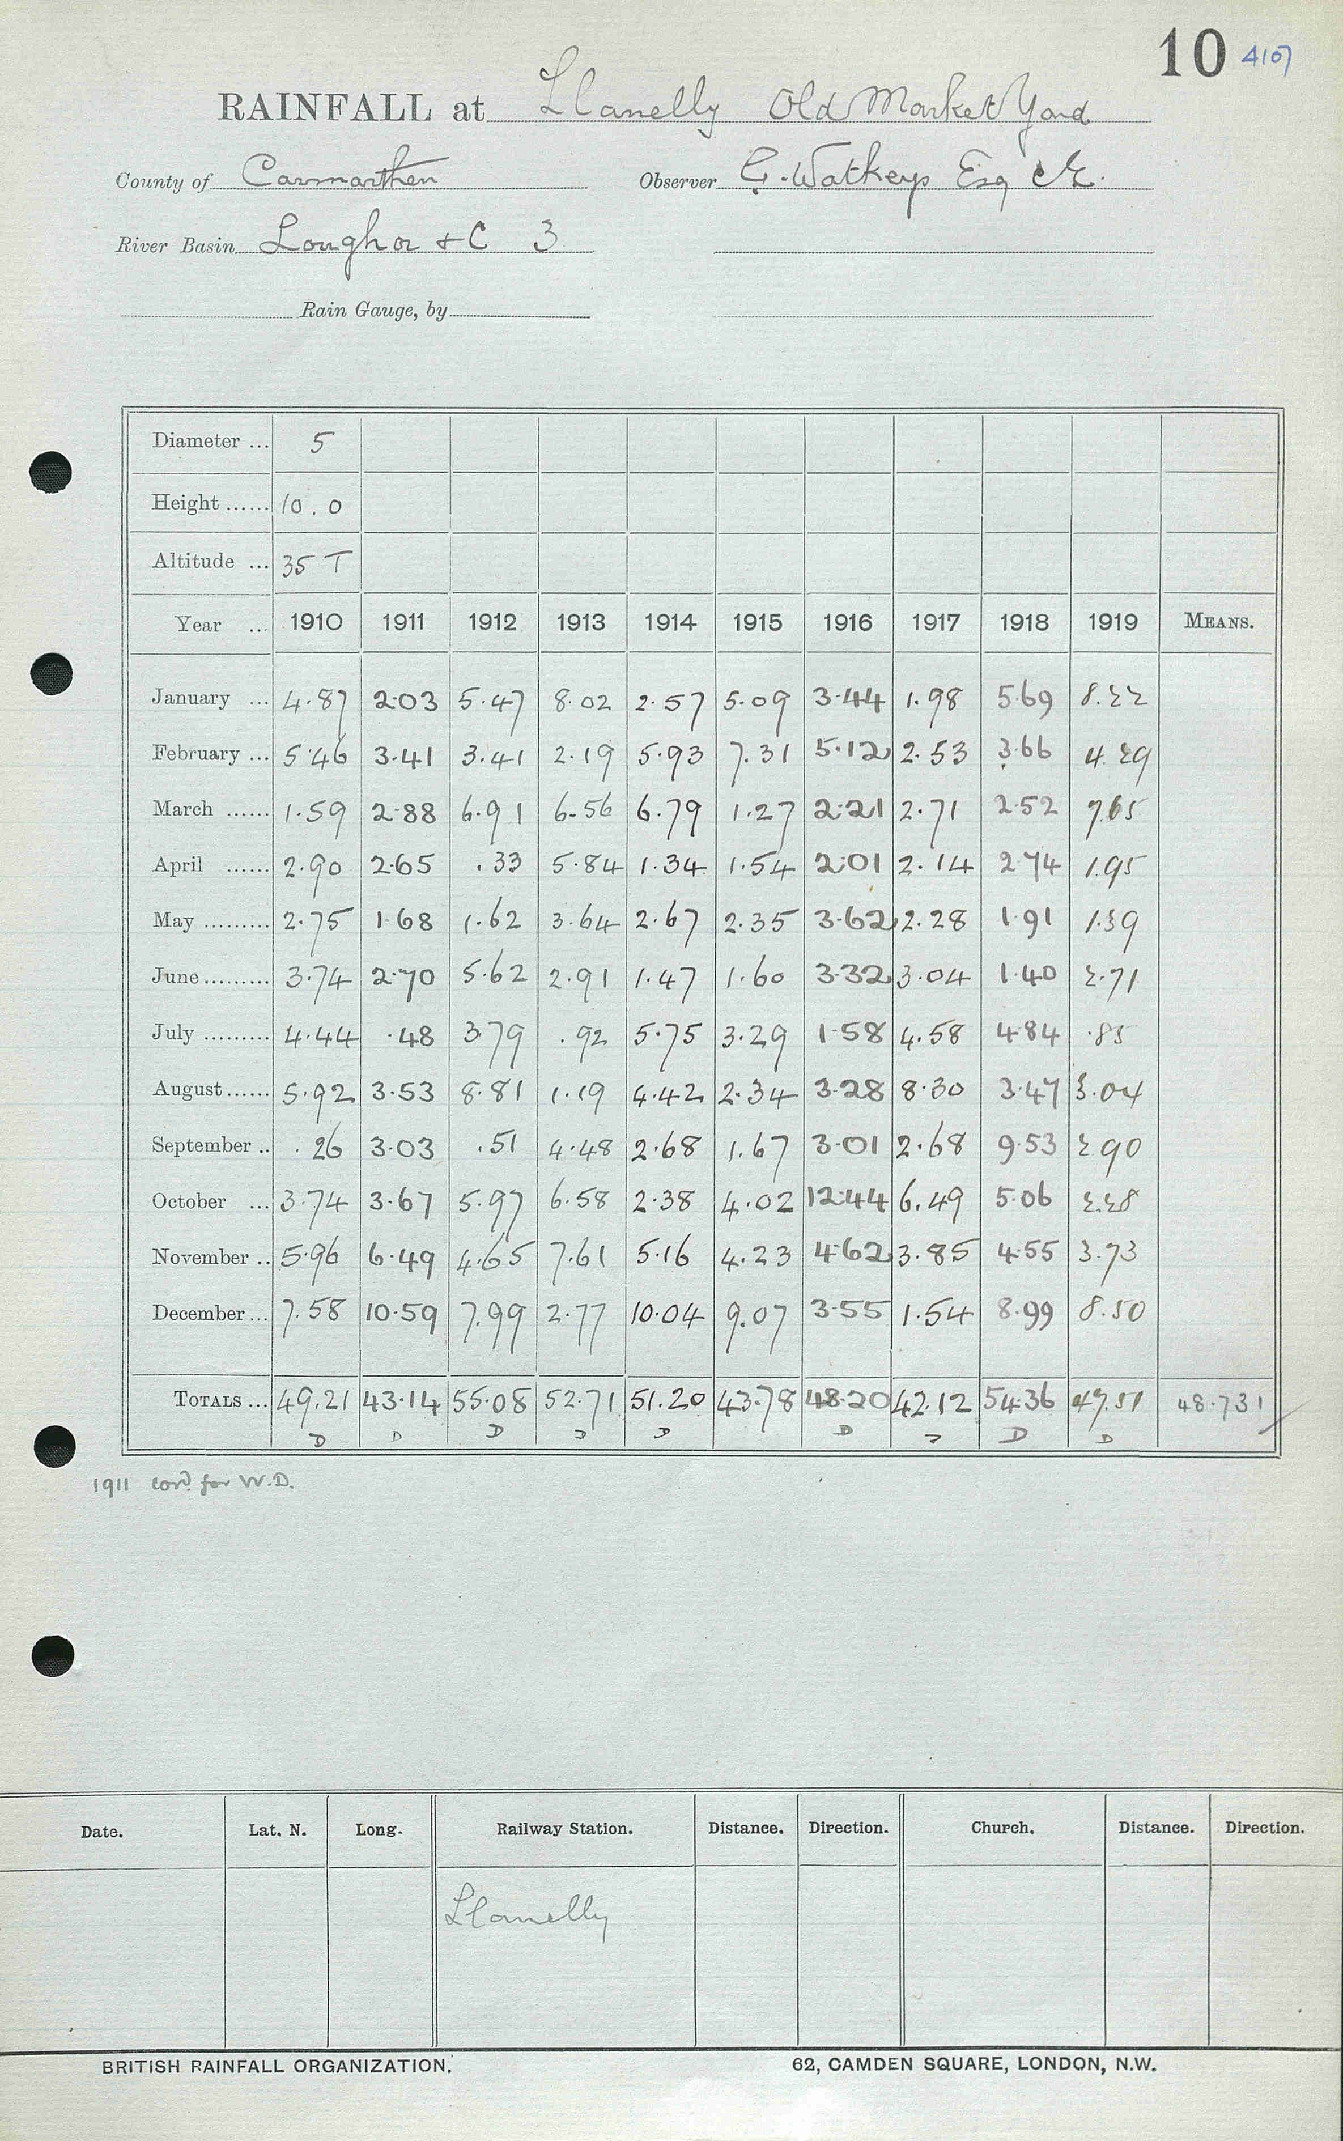 10 4107
RAINFALL at Llanelly Old Market Yard
County of Carmarthen Observer G. Watkeys Esq CE.
River Basin Loughor + C 3
Rain Gauge, by
Diameter ... 5
Height ...... 10.0
Altitude ... 35 T
Year ... 1910 1911 1912 1913 1914 1915 1916 1917 1918 1919 MEANS.
January ... 4.87 2.03 5.47 8.02 2.57 5.09 3.44 1.98 5.69 8.22
February ... 5.46 3.41 3.41 2.19 5.93 7.31 5.12 2.53 3.66 4.29
March ...... 1.59 2.88 6.91 6.56 6.79 1.27 2.21 2.71 2.52 7.65
April ...... 2.90 2.65 .33 5.84 1.34 1.54 2.01 2.14 2.74 1.95
May ......... 2.75 1.68 1.62 3.64 2.67 2.35 3.62 2.28 1.91 1.39
June ......... 3.74 2.70 5.62 2.91 1.47 1.60 3.32 3.04 1.40 2.71
July ......... 4.44 .48 3.79 .92 5.75 3.29 1.58 4.58 4.84 .85
August ...... 5.92 3.53 8.81 1.19 4.42 2.34 3.28 8.30 3.47 3.04
September .. .26 3.03 .51 4.48 2.68 1.67 3.01 2.68 9.53 2.90
October ... 3.74 3.67 5.97 6.58 2.38 4.02 12.44 6.49 5.06 2.28
November .. 5.96 6.49 4.65 7.61 5.16 4.23 4.62 3.85 4.55 3.73
December ... 7.58 10.59 7.99 2.77 10.04 9.07 3.55 1.54 8.99 8.50
TOTALS ... 49.21 43.14 55.08 52.71 51.20 43.78 48.20 42.12 54.36 47.51 48.731
D D D D D D D D D
1911 cord for W.D.
Date. Lat. N. Long. Railway Station. Distance. Direction. Church. Distance. Direction.
Llanelly
BRITISH RAINFALL ORGANIZATION. 62, CAMDEN SQUARE, LONDON, N.W.